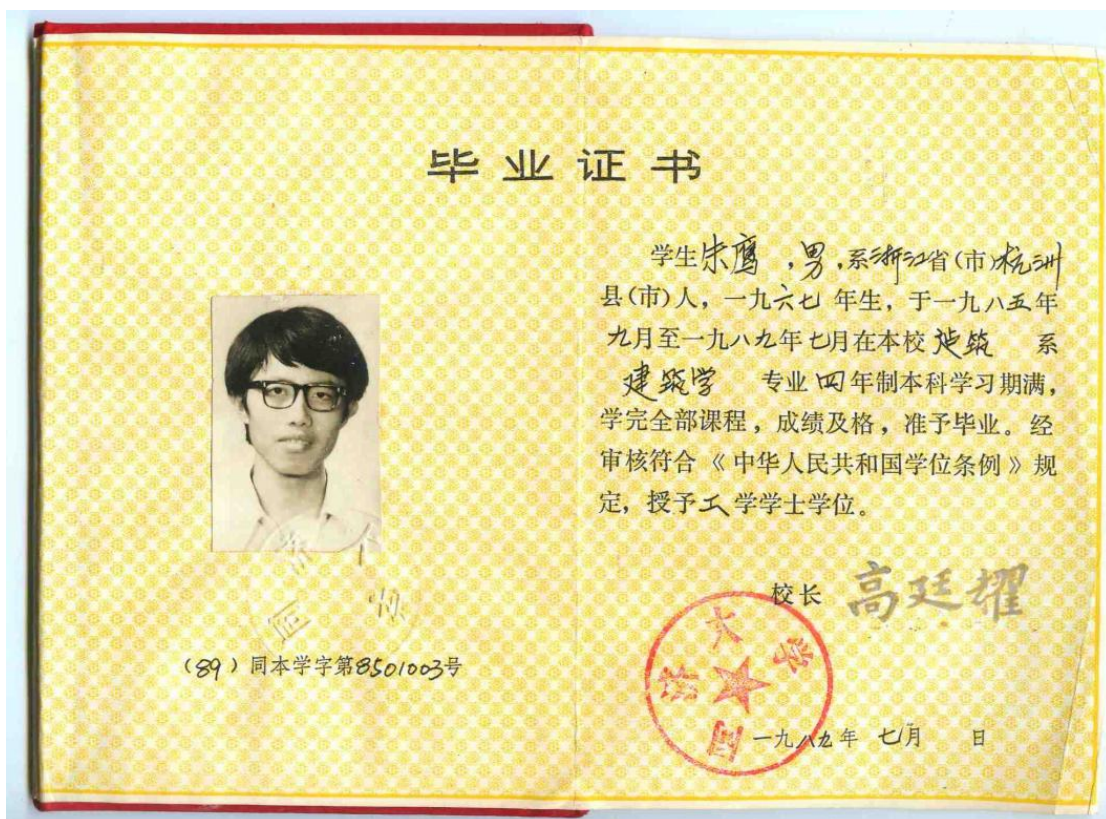 毕业证书
学生朱鹰，男，系浙江省(市)杭州
县(市)人，一九六七年生，于一九八五年
九月至一九八九年七月在本校建筑 系
建筑学 专业四年制本科学习期满，
学完全部课程，成绩及格，准予毕业。经
审核符合《中华人民共和国学位条例》规
定，授予工学学士学位。
校长 高廷耀
同济大学
一九八九年 七月 日
(89)同本学字第8501003号